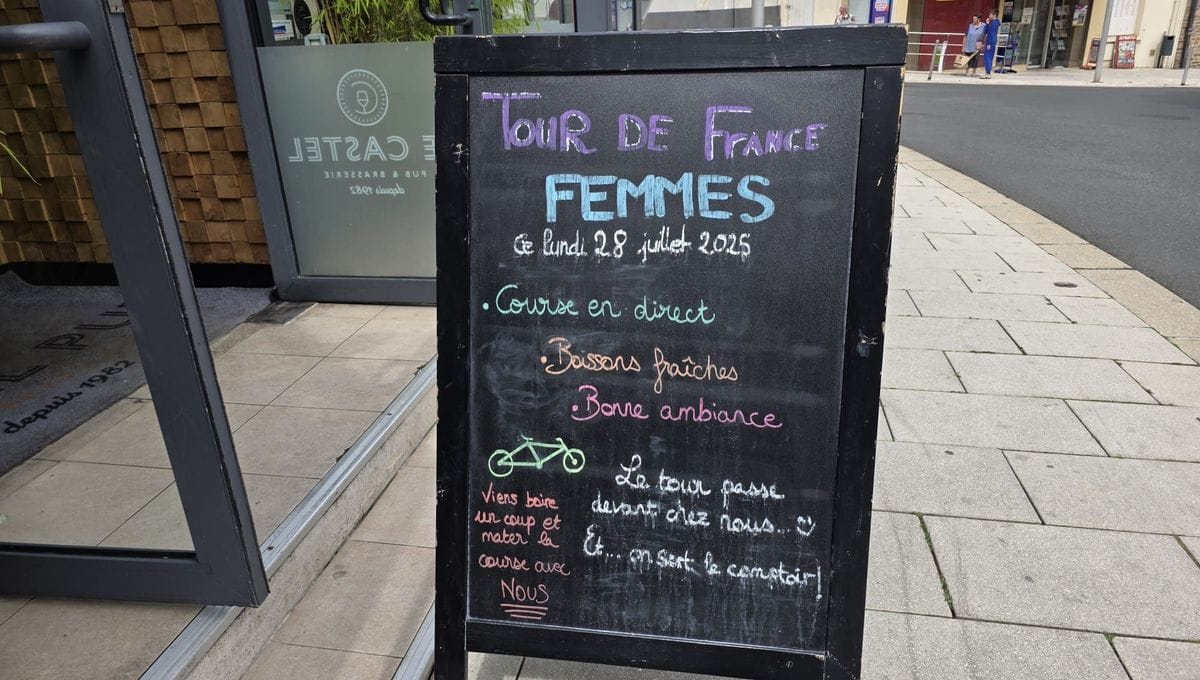 TOUR DE FRANCE
FEMMES
Ce lundi 28 juillet 2025
• Course en direct
• Boissons fraîches
• Bonne ambiance
Viens boire
un coup et
mater la
course avec
NOUS
Le tour passe
devant chez nous...☺
Et... on sert le comptoir!
E CASTEL
PUB & BRASSERIE
depuis 1982
PU
depuis 1982